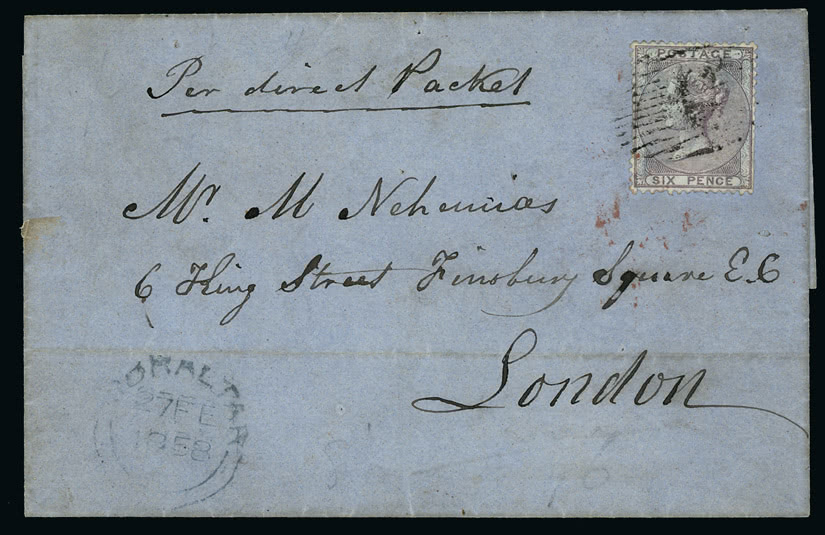 POSTAGE
Per direct Packet
SIX PENCE
Mr. M Nehemias
6 King Street Finsbury Square E.C
London
GIBRALTAR
27 FE
1858